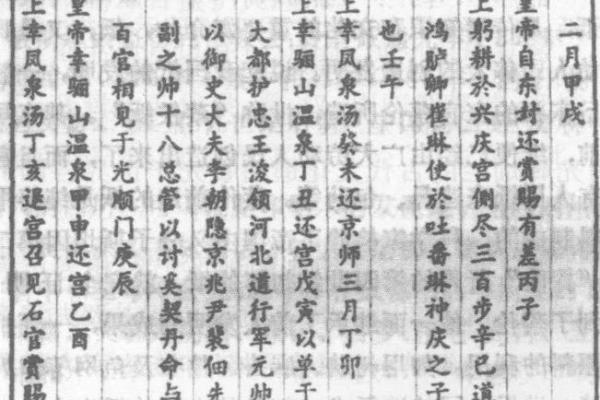 二月甲戌
皇帝自东封还赏赐有差丙子
上躬耕於兴庆宫侧尽三百步辛已道
鸿胪卿崔琳使於吐番琳神庆之子
也壬午
上幸凤泉汤癸未还京师三月丁卯
上幸骊山温泉丁丑还宫戊寅以单于
大都护忠王浚领河北道行军元帅
以御史大夫李朝隐京兆尹裴佃先
副之帅十八总管以讨奚契丹命与
百官相见于光顺门庚辰
皇帝幸骊山温泉甲申还宫乙酉
上幸凤泉汤丁亥退宫召见石官赏赐